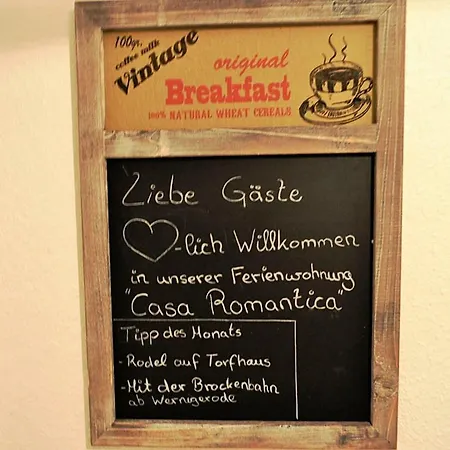 100gr.
coffee milk
Vintage
original
Breakfast
100% NATURAL WHEAT CEREALS
Liebe Gäste
-lich Willkommen
in unserer Ferienwohnung
"Casa Romantica"
Tipp des Monats
- Rodel auf Torfhaus
- Mit der Brockenbahn
ab Wernigerode